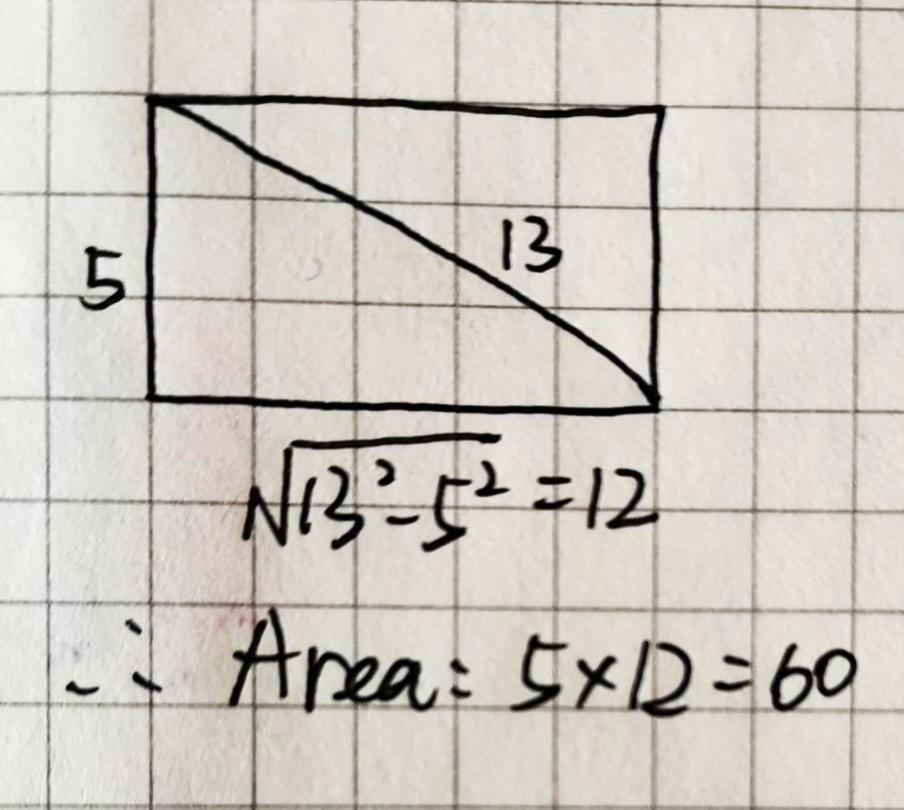 13
5
√13²-5² = 12
∴ Area: 5×12=60